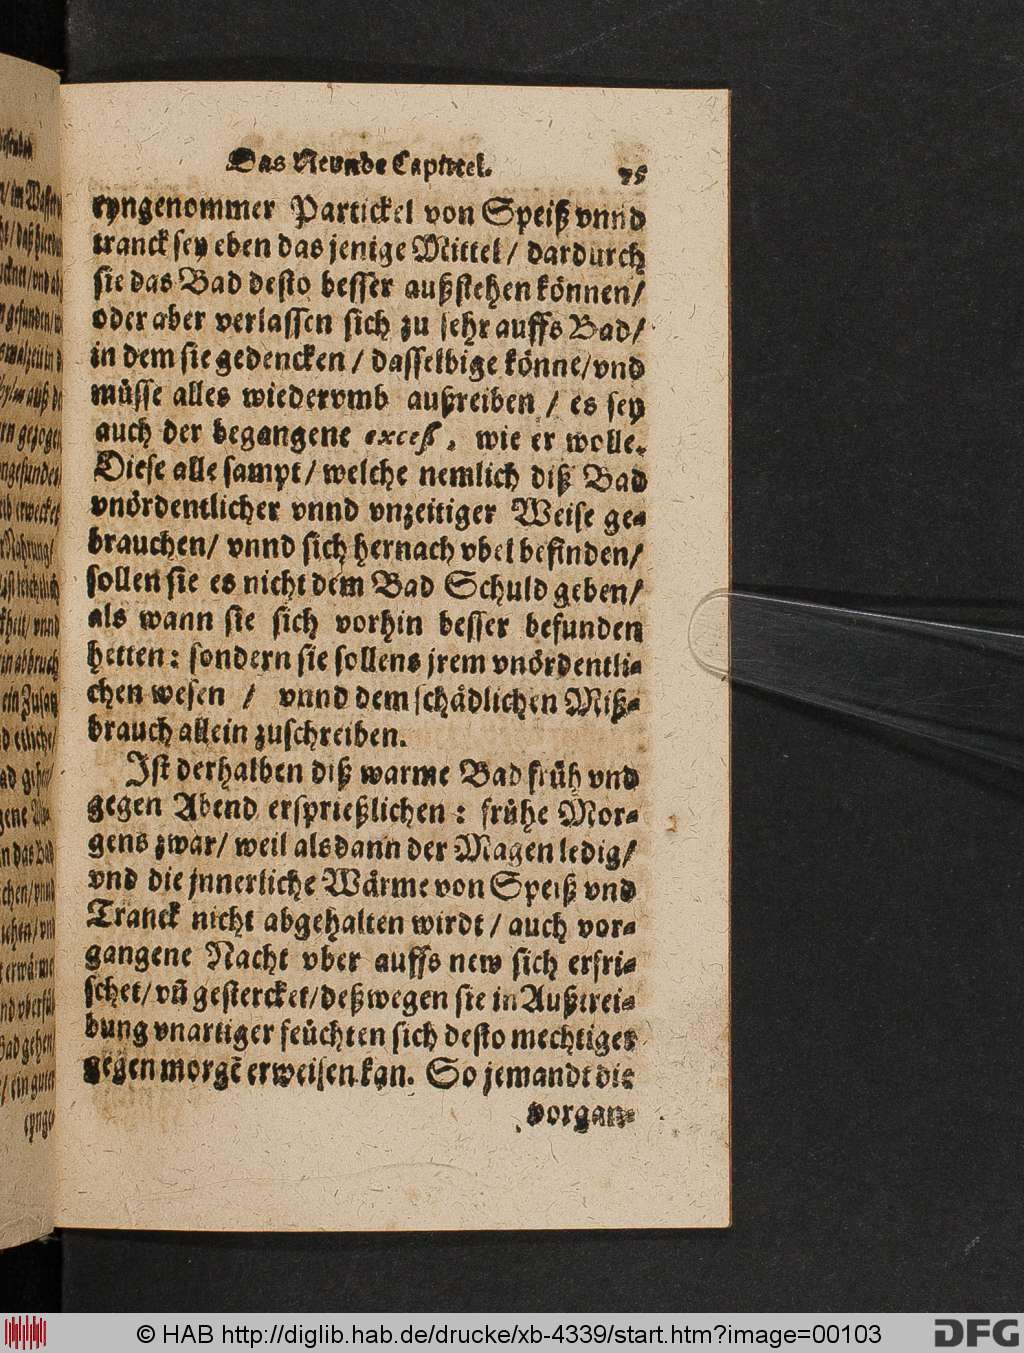 Das Neunde Capittel. 75
eyngenommer Partickel von Speiß vnnd
tranck sey eben das jenige Mittel / dardurch
sie das Bad desto besser außstehen können/
oder aber verlassen sich zu sehr auffs Bad/
in dem sie gedencken / dasselbige könne/vnd
müsse alles wiedervmb außreiben / es sey
auch der begangene exceß, wie er wolle.
Diese alle sampt/ welche nemlich diß Bad
vnördentlicher vnnd vnzeitiger Weise ge-
brauchen/ vnnd sich hernach vbel befinden/
sollen sie es nicht dem Bad Schuld geben/
als wann sie sich vorhin besser befunden
hetten: sondern sie sollens jrem vnördentli-
chen wesen / vnnd dem schädlichen Miß-
brauch allein zuschreiben.
Ist derhalben diß warme Bad früh vnd
gegen Abend ersprießlichen: frühe Mor-
gens zwar/ weil alsdann der Magen ledig/
vnd die jnnerliche Wärme von Speiß vnd
Tranck nicht abgehalten wirdt / auch vor-
gangene Nacht vber auffs new sich erfri-
schet/ vñ gestercket/ deßwegen sie in Außtrei-
bung vnartiger feüchten sich desto mechtiger
gegen morgē erweisen kan. So jemandt die
vorgan-
© HAB http://diglib.hab.de/drucke/xb-4339/start.htm?image=00103
DFG